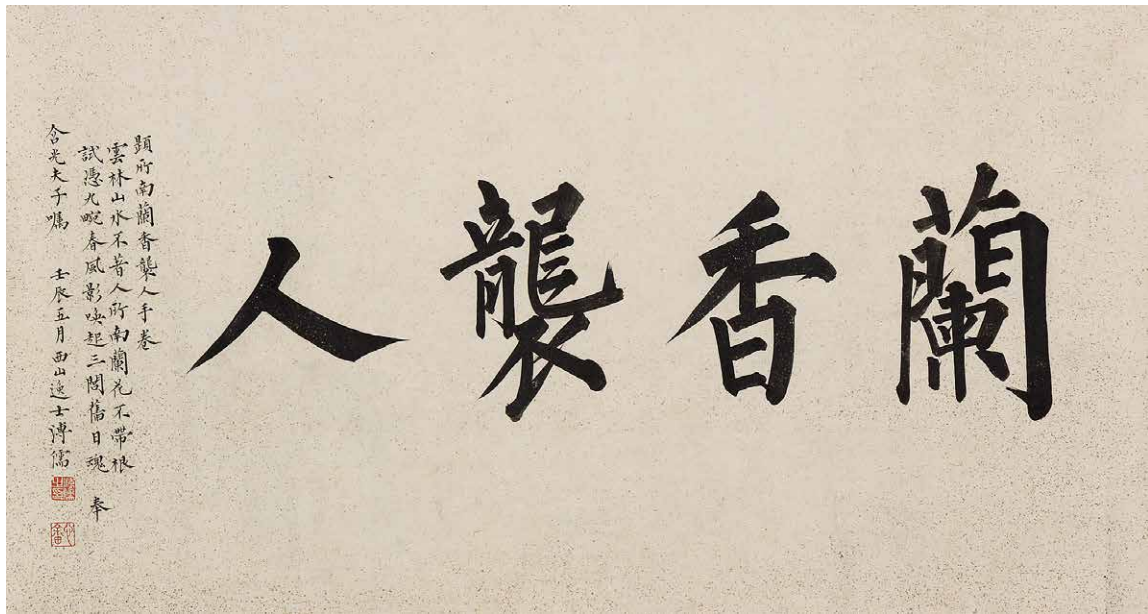 蘭香襲人
題所南蘭香襲人手卷
雲林山水不著人所南蘭花不帶根
試憑九畹春風影喚起三閭舊日魂 奉
含光夫子囑 壬辰五月 西山逸士溥儒
心畬